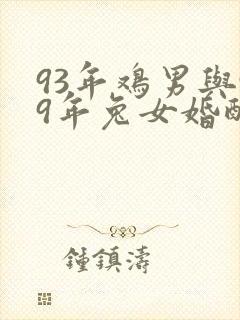 93年鸡男與
9年兔女婚
鍾鎮濤